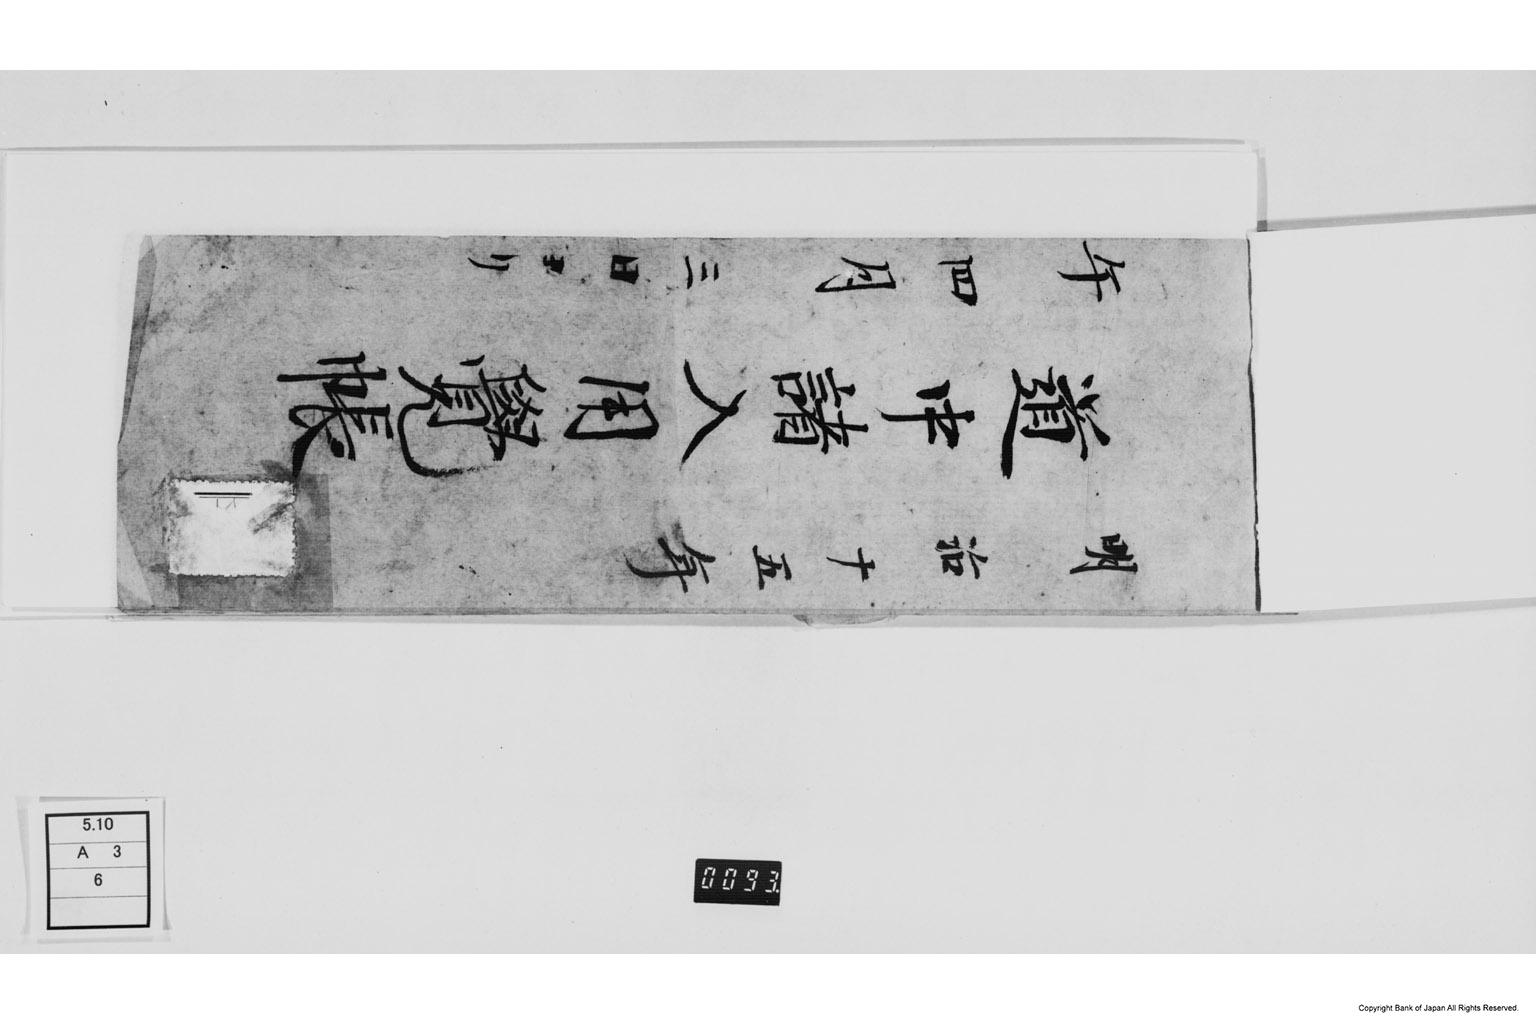 明治十五年
道中諸入用覺帳
午四月三日ヨリ
5.10
A 3
6
0093
Copyright Bank of Japan All Rights Reserved.